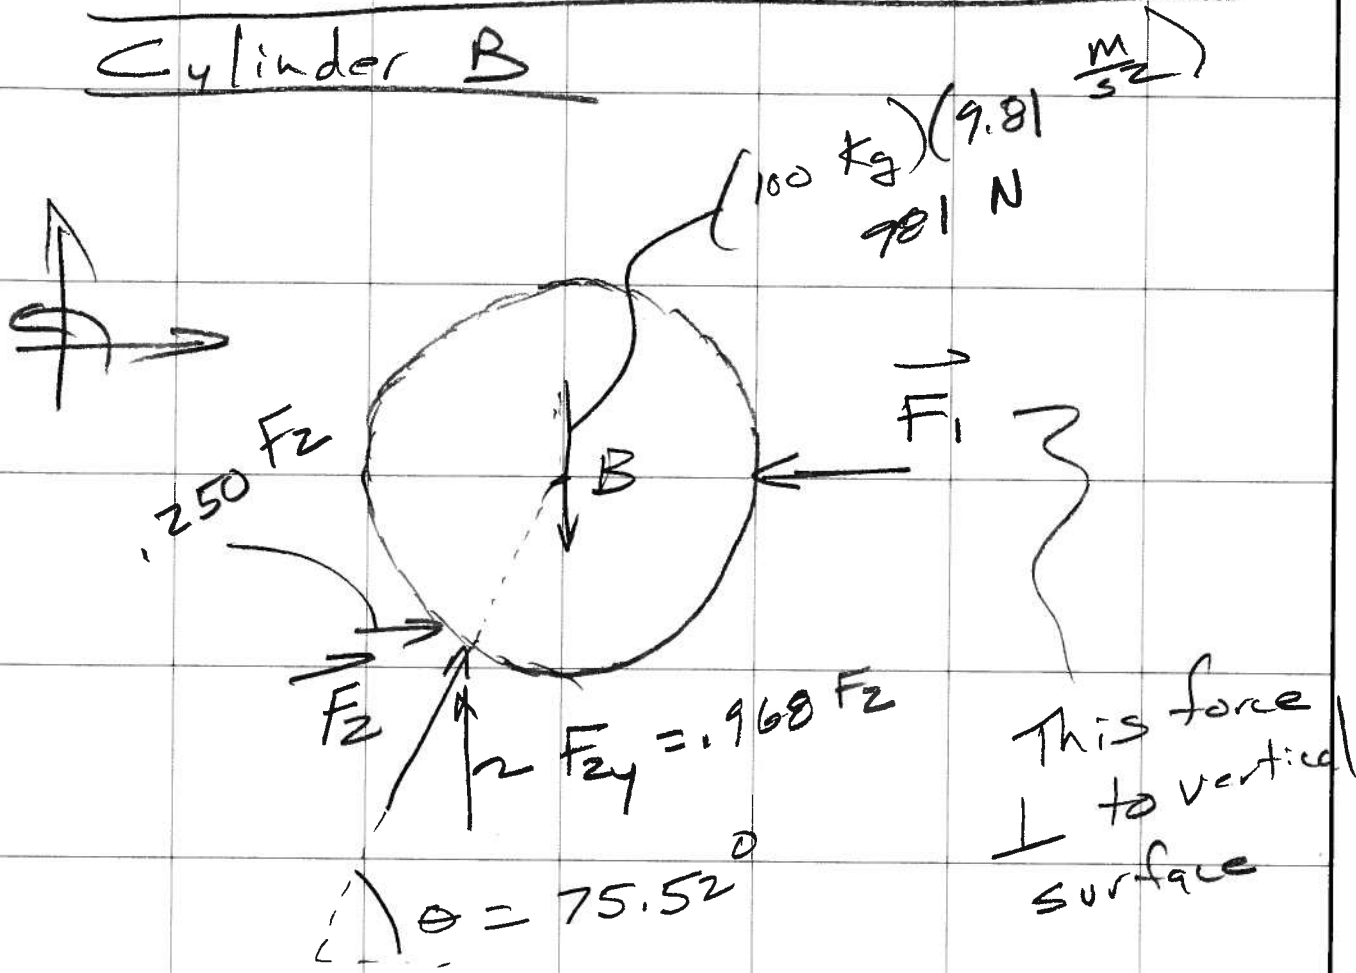 Cylinder B
(100 Kg)(9.81 m/s²)
981 N
F₁
.250 F₂
B
F₂
F₂y = .968 F₂
This force
⊥ to vertical
surface
θ = 75.52°